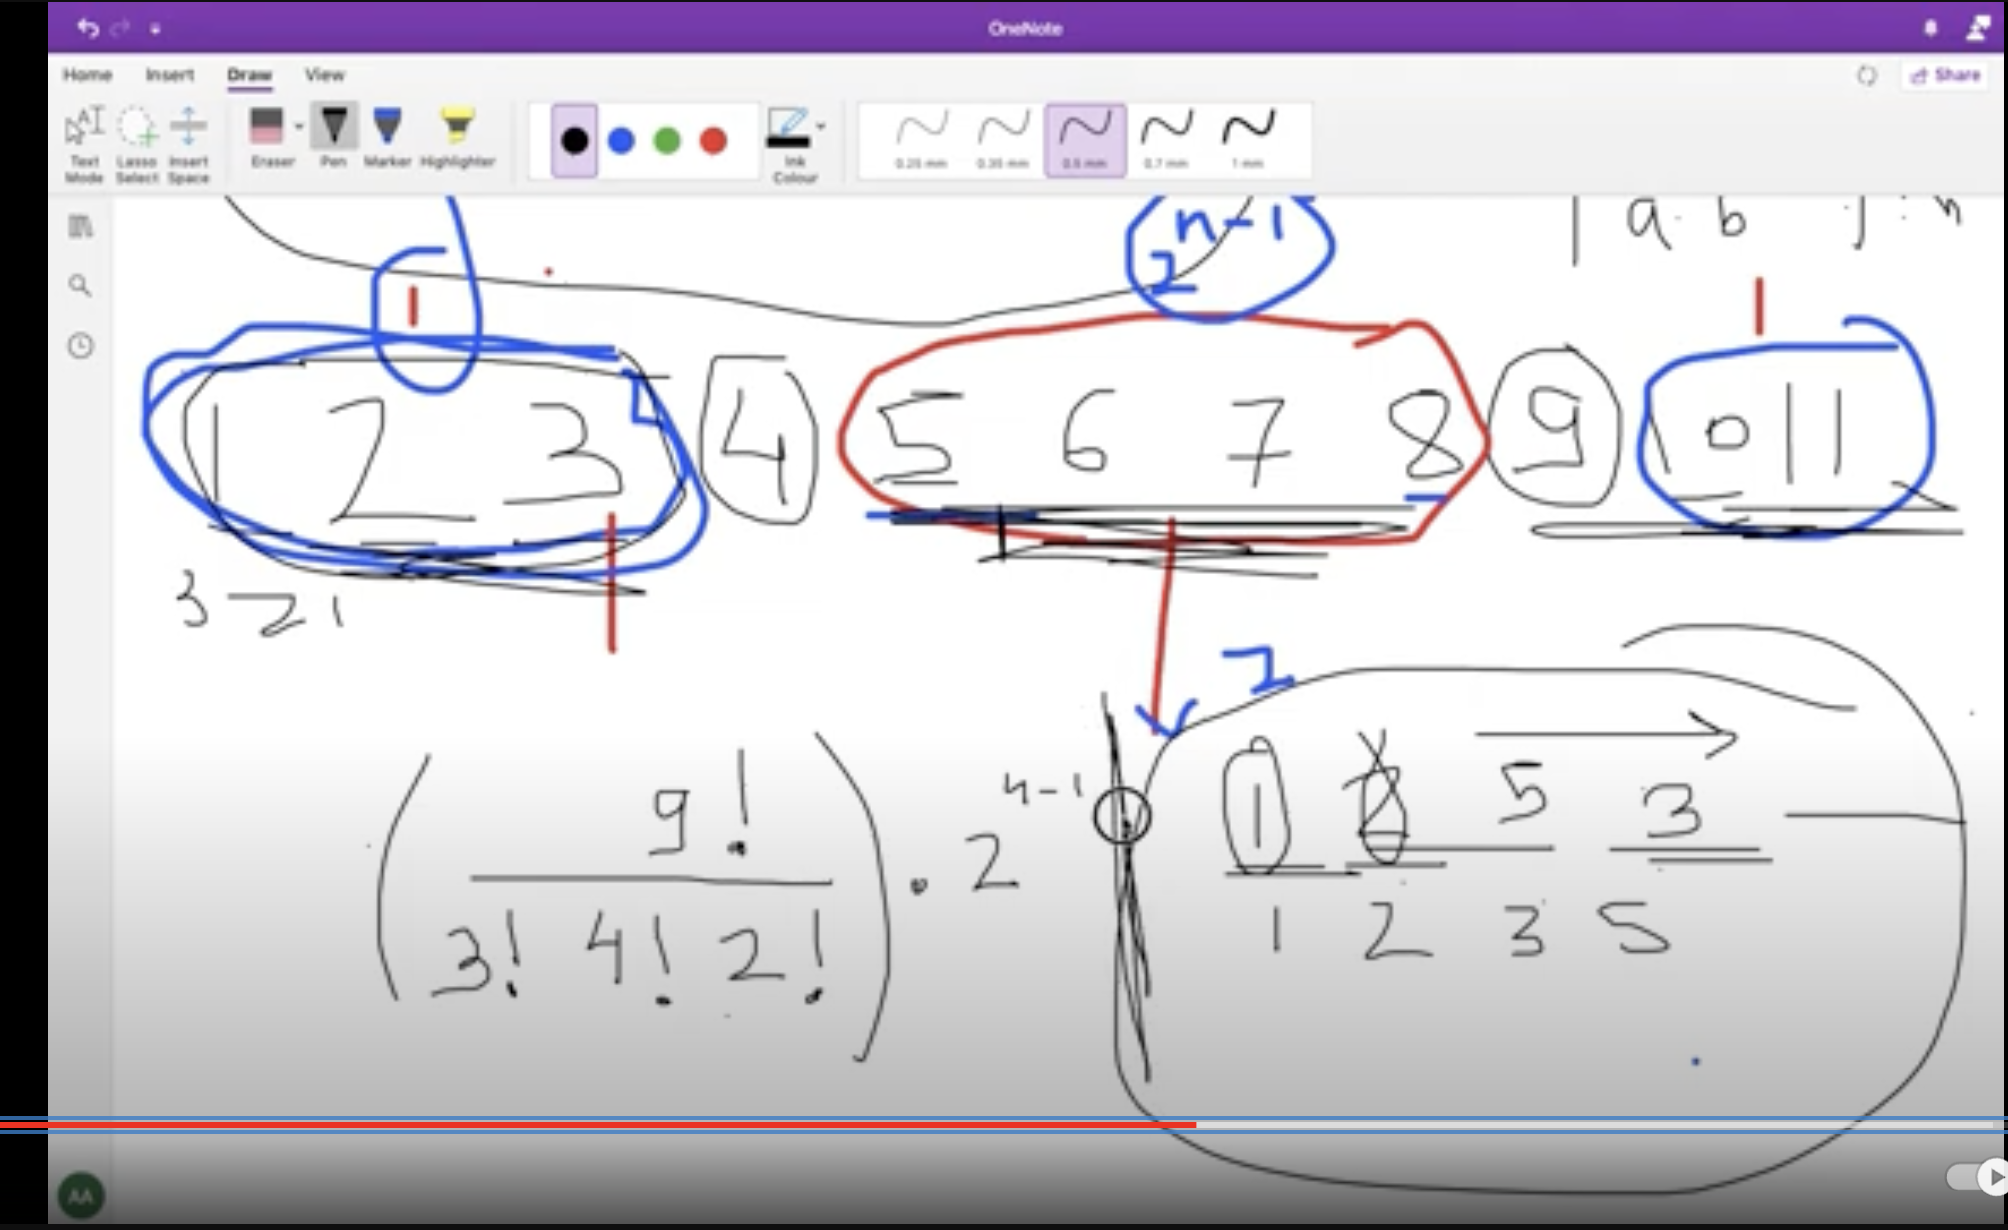 OneNote
Home Insert Draw View
Share
Text Mode
Lasso Select
Insert Space
Eraser
Pen
Marker
Highlighter
Ink Colour
0.25 mm
0.35 mm
0.5 mm
0.7 mm
1 mm
2 n-1
a. b
1 1
1 2 3 4 5 6 7 8 9 10 11
3 2 1
2
( 9! / 3! 4! 2! ) . 2 n-1
1 2 5 3
1 2 3 5
AA